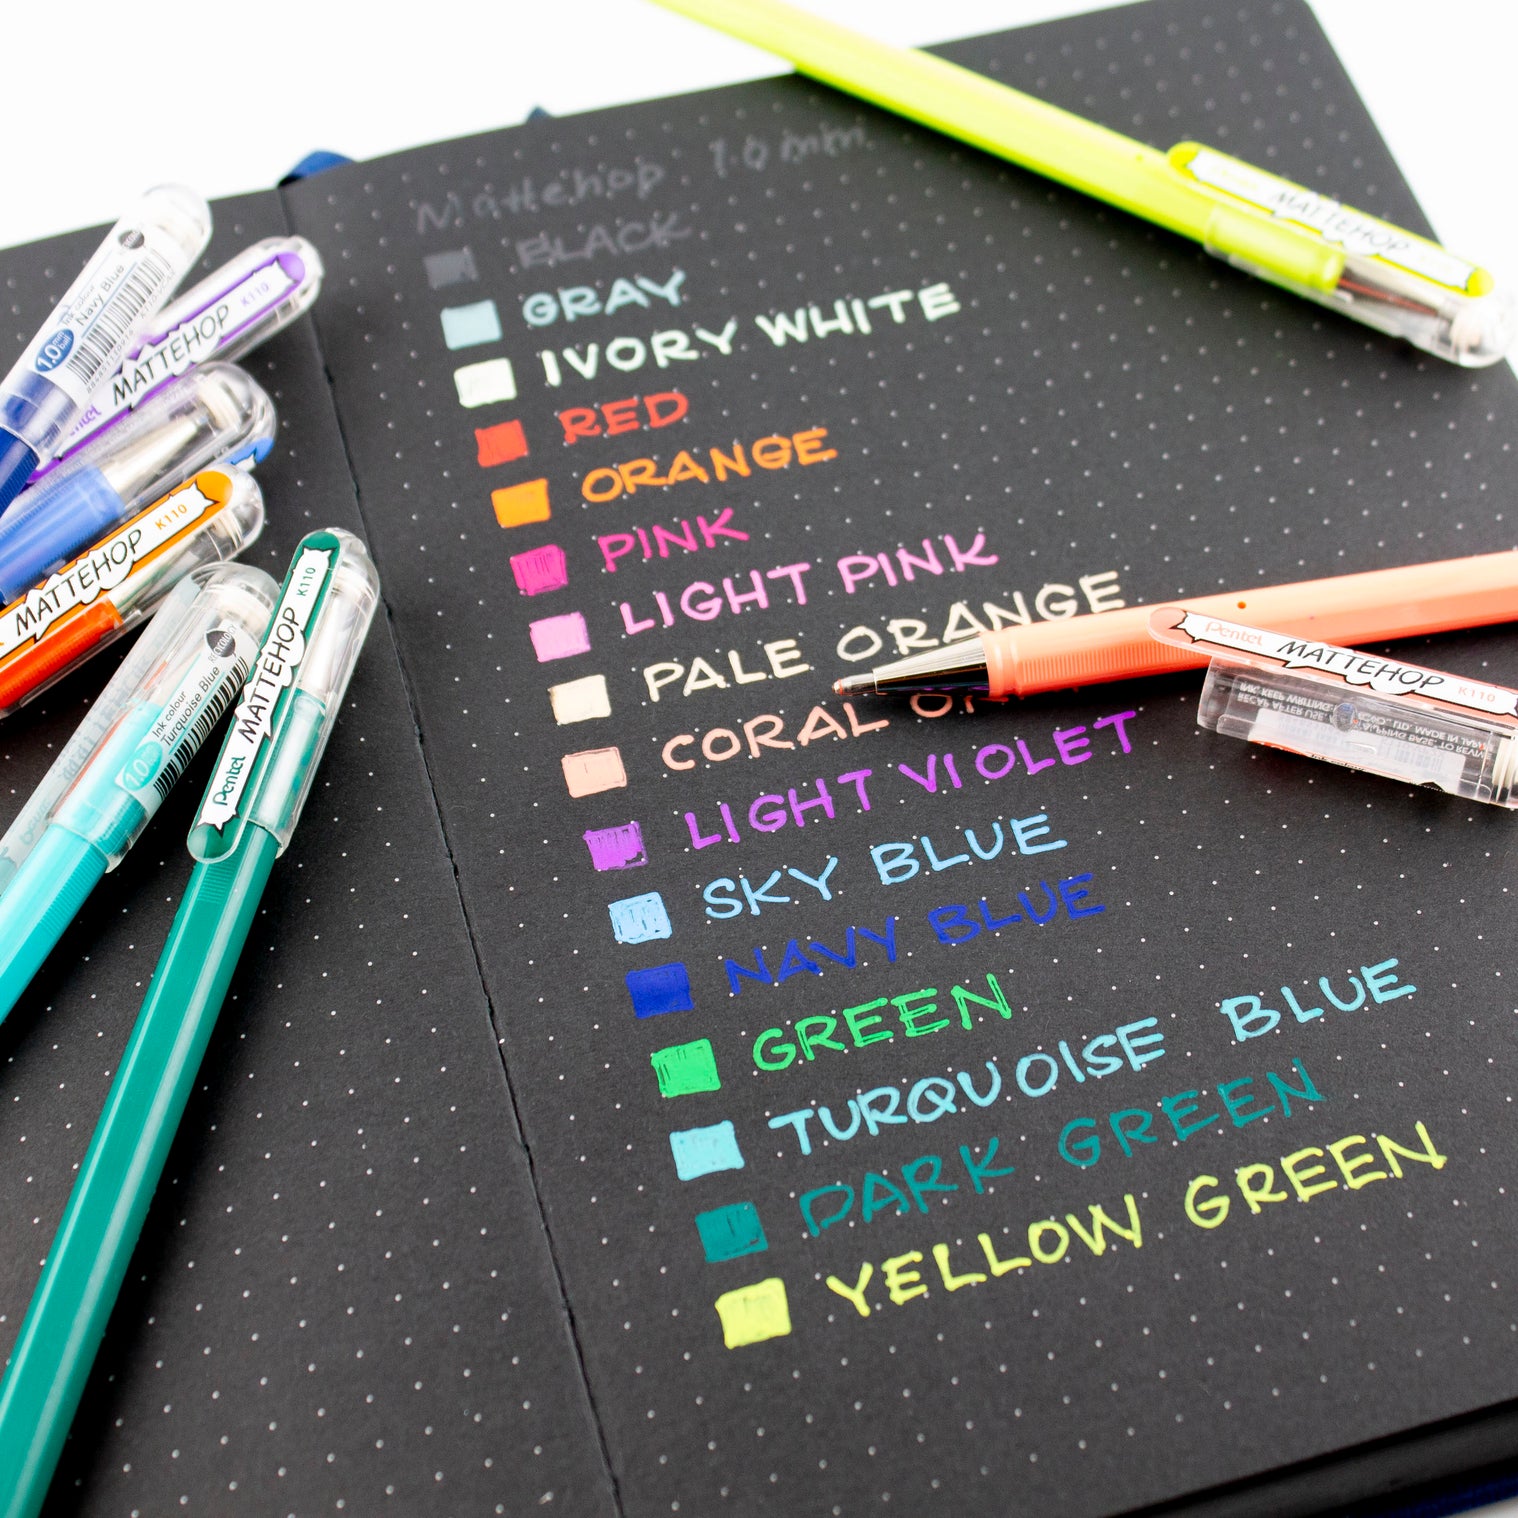 Mattehop 1.0 mm
BLACK
GRAY
IVORY WHITE
RED
ORANGE
PINK
LIGHT PINK
PALE ORANGE
CORAL
LIGHT VIOLET
SKY BLUE
NAVY BLUE
GREEN
TURQUOISE BLUE
DARK GREEN
YELLOW GREEN
MATTEHOP
Pentel MATTEHOP K110
RECAP AFTER USE.
INK COLOUR
Navy Blue
1.0
MATTEHOP K110
MATTEHOP K110
Ink colour
Turquoise Blue
1.0
Pentel MATTEHOP K110